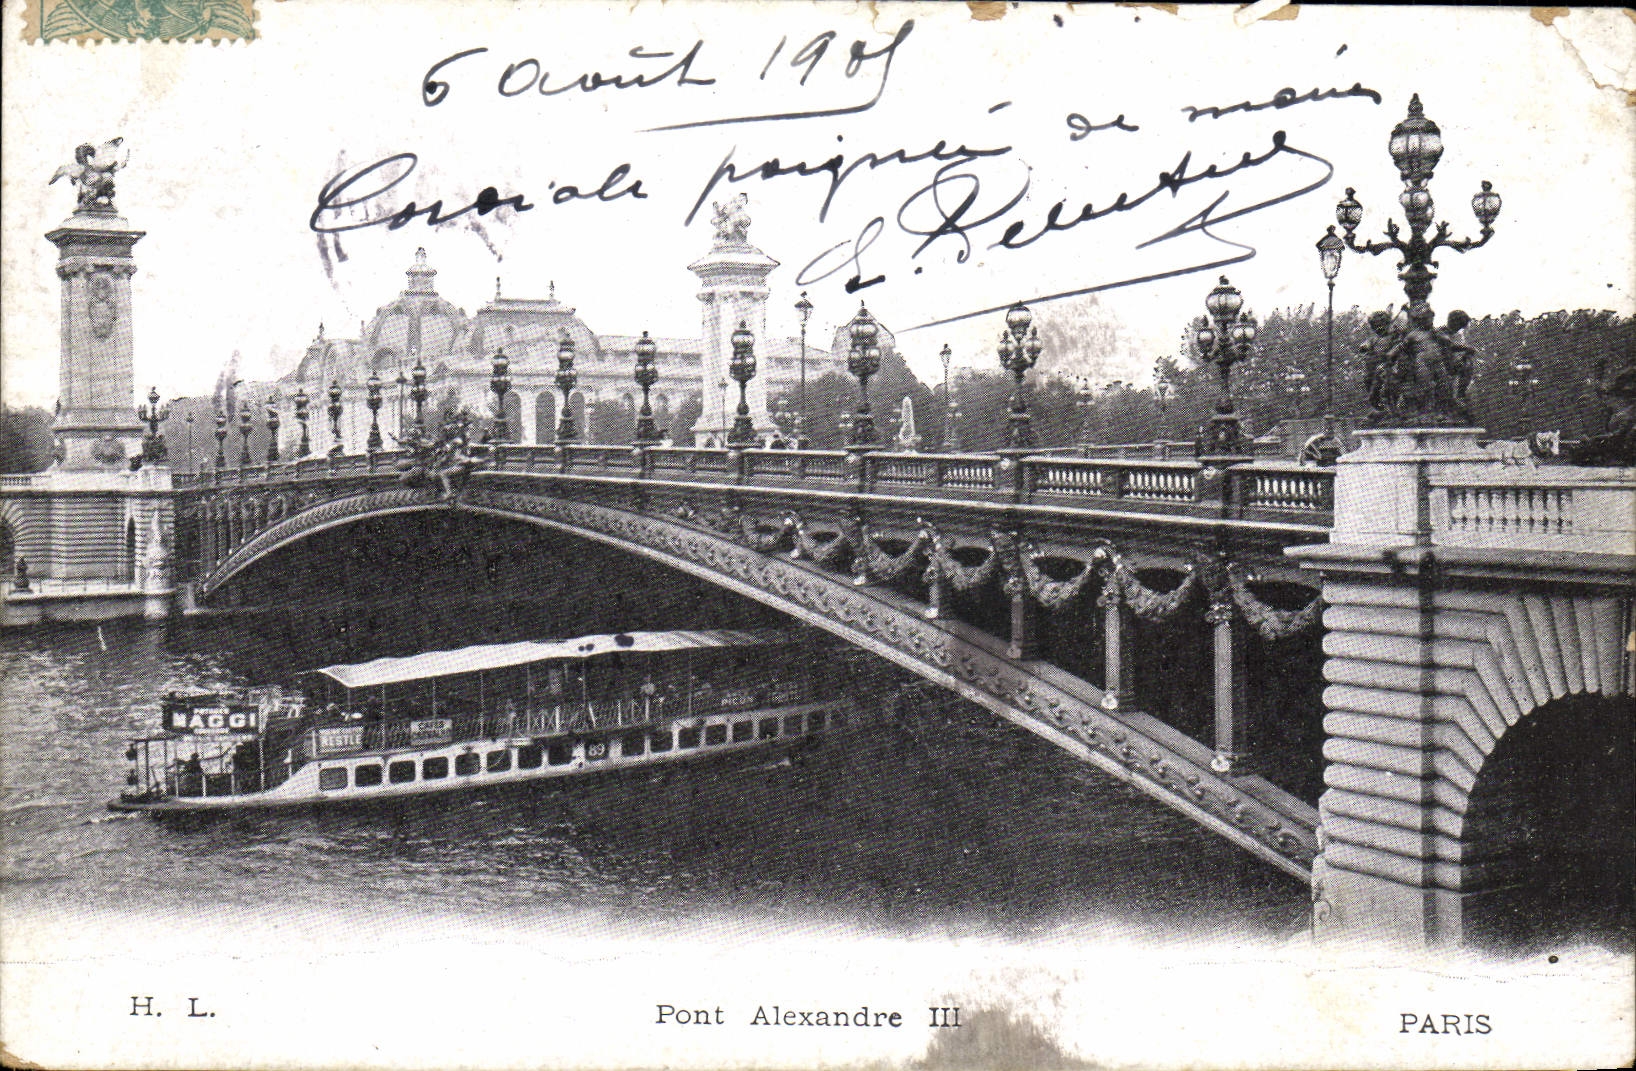 6 Août 1905
Cordiale poignée de mains
MAGGI
NESTLÉ
CAFÉS
PICON
89
H. L.
Pont Alexandre III
PARIS